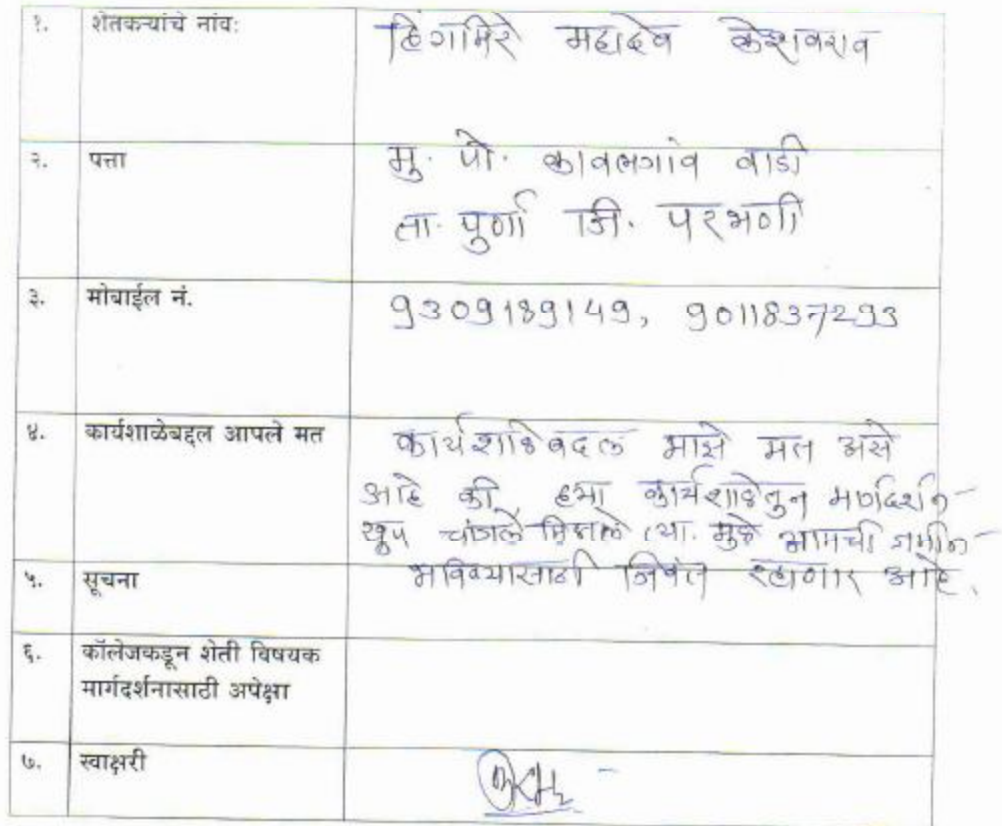 १. शेतकऱ्यांचे नांव: हिंगमिरे महादेव केशवराव
२. पत्ता मु. पो. कावलगांव वाडी
ता. पुर्णा जि. परभणी
३. मोबाईल नं. 9309189149, 9011837293
४. कार्यशाळेबद्दल आपले मत कार्यशाळेबदल माझे मत असे
आहे की, ह्या कार्यशाळेतुन मार्गदर्शन
खुप चांगले मिळाले त्या. मुळे आमची जमीन
५. सूचना भविष्यासाठी जिवंत रहाणार आहे.
६. कॉलेजकडून शेती विषयक
मार्गदर्शनासाठी अपेक्षा
७. स्वाक्षरी